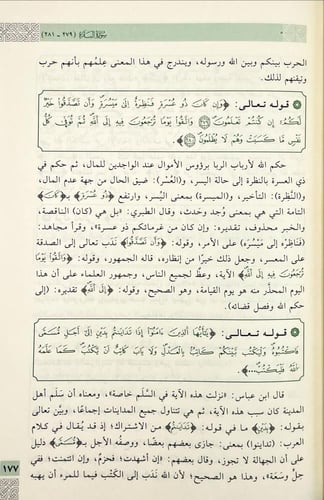 سورة البقرة (٢٧٩ - ٢٨١)
الحرب بينكم وبين الله ورسوله، ويندرج في هذا المعنى علمهم بأنهم حرب
وتيقنهم لذلك.
قوله تعالى: ﴿وَإِن كَانَ ذُو عُسْرَةٍ فَنَظِرَةٌ إِلَىٰ مَيْسَرَةٍ وَأَن تَصَدَّقُوا خَيْرٌ
لَّكُمْ إِن كُنتُمْ تَعْلَمُونَ ﴿٢٨٠﴾ وَاتَّقُوا يَوْمًا تُرْجَعُونَ فِيهِ إِلَى اللَّهِ ثُمَّ تُوَفَّىٰ كُلُّ
نَفْسٍ مَّا كَسَبَتْ وَهُمْ لَا يُظْلَمُونَ ﴿٢٨١﴾﴾
حكم الله لأرباب الربا برؤوس الأموال عند الواجدين للمال، ثم حكم في
ذي العسرة بالنظرة إلى حالة اليسر، و(العُسْر): ضيق الحال من جهة عدم المال،
و(النَّظِرة): التأخير، و(الميسرة) بمعنى اليسر، وارتفع ﴿ذُو عُسْرَةٍ﴾ بـ﴿كَانَ﴾
التامة التي هي بمعنى وُجد وحدث، وقال الطبري: «بل هي (كان) الناقصة،
والخبر محذوف، تقديره: وإن كان من غرمائكم ذو عسرة»، وقرأ مجاهد:
﴿فَنَاظِرْهُ إِلَى مَيْسَرَةٍ﴾ على الأمر، وقوله: ﴿وَأَن تَصَدَّقُوا﴾ نَدَب تعالى إلى الصدقة
على المعسر، وجعل ذلك خيرًا من إنظاره، قاله الجمهور، وقوله: ﴿وَاتَّقُوا يَوْمًا
تُرْجَعُونَ فِيهِ إِلَى اللَّهِ﴾ الآية، وعظ لجميع الناس، وجمهور العلماء على أن هذا
اليوم المحذَّر منه هو يوم القيامة، وهو الصحيح، وقوله: ﴿إِلَى اللَّهِ﴾ تقديره: (إلى
حكم الله وفصل قضائه).
قوله تعالى: ﴿يَا أَيُّهَا الَّذِينَ آمَنُوا إِذَا تَدَايَنتُم بِدَيْنٍ إِلَىٰ أَجَلٍ مُّسَمًّى
فَاكْتُبُوهُ وَلْيَكْتُب بَّيْنَكُمْ كَاتِبٌ بِالْعَدْلِ وَلَا يَأْبَ كَاتِبٌ أَن يَكْتُبَ كَمَا عَلَّمَهُ
اللَّهُ فَلْيَكْتُبْ...﴾
قال ابن عباس: «نزلت هذه الآية في السَّلَم خاصة»، ومعناه أن سَلَم أهل
المدينة كان سبب هذه الآية، ثم هي تتناول جميع المداينات إجماعًا، وبيَّن تعالى
بقوله: ﴿بِدَيْنٍ﴾ ما في قوله: ﴿تَدَايَنتُم﴾ من الاشتراك؛ إذ قد يُقال في كلام
العرب: (تداينوا) بمعنى: جازى بعضهم بعضًا، ووصفُه الأجل بـ﴿مُسَمًّى﴾ دليل
على أن الجهالة لا تجوز، وقال بعضهم: «إن أشهدتَ فحزمٌ، وإن ائتمنت؛ ففي
حِلٍّ وسَعَة»، وهذا هو الصحيح؛ لأن الله نَدَب إلى الكَتْب فيما للمرء أن يهبه
١٧٧